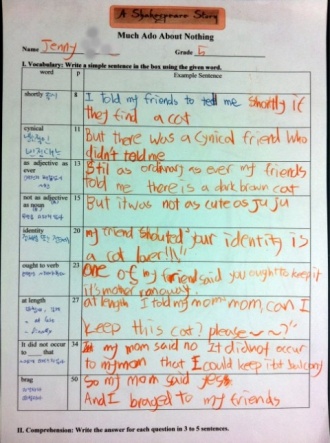 A Shakespeare Story
Much Ado About Nothing
Name Jenny Grade 5
I. Vocabulary: Write a simple sentence in the box using the given word.
word p Example Sentence
shortly 8 I told my friends to tell me shortly if
they find a cat
cynical 11 But there was a cynical friend who
didn't told me
as adjective as ever 13 Still as ordinary as ever my friends
told me there is a dark brown cat
not as adjective as noun 15 But it was not as cute as Ju Ju
identity 20 my friend shouted "your identity is
a cat lover!!!"
ought to verb 23 one of my friend said you ought to keep it
it's mother ran away
at length 27 at length I told my mom "mom, can I
keep this cat? please~~"
It did not occur to __ that 34 my mom said no It did not occur
to my mom that I could keep it at balcony
brag 50 So my mom said yes
And I braged to my friends
II. Comprehension: Write the answer for each question in 3 to 5 sentences.